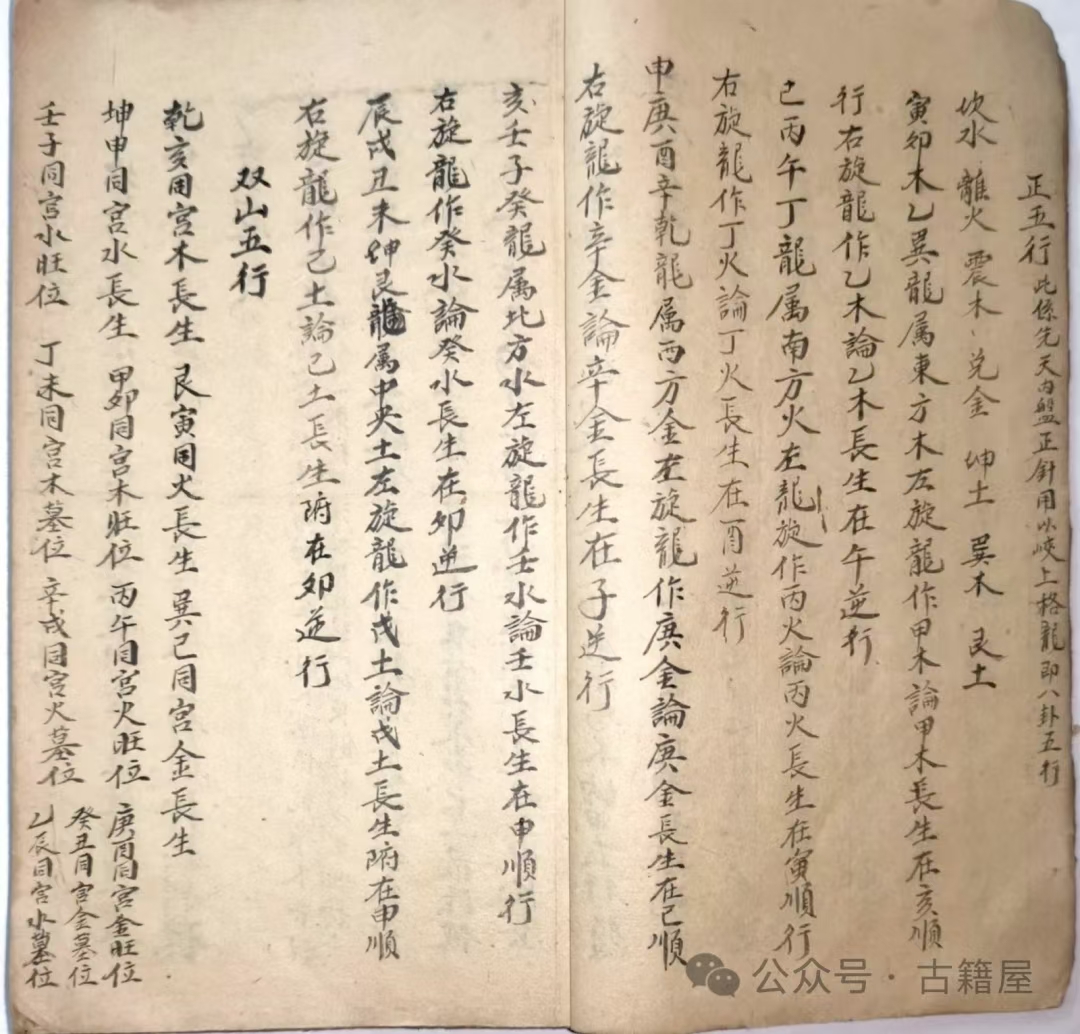 正五行 此係先天内盤正針用以峽上格龍即八卦五行
坎水 離火 震木 兑金 坤土 巽木 艮土
寅卯木乙巽龍属東方木左旋龍作甲木論甲木長生在亥順
行右旋龍作乙木論乙木長生在午逆行
巳丙午丁龍属南方火左龍旋作丙火論丙火長生在寅順行
右旋龍作丁火論丁火長生在酉逆行
申庚酉辛乾龍属西方金左旋龍作庚金論庚金長生在巳順
右旋龍作辛金論辛金長生在子逆行
亥壬子癸龍属北方水左旋龍作壬水論壬水長生在申順行
右旋龍作癸水論癸水長生在卯逆行
辰戌丑未坤艮龍属中央土左旋龍作戊土論戊土長生附在申順
右旋龍作己土論己土長生附在卯逆行
双山五行
乾亥同宫木長生 艮寅同火長生 巽巳同宫金長生
坤申同宫水長生 甲卯同宫木旺位 丙午同宫火旺位 庚酉同宫金旺位
壬子同宫水旺位 丁未同宫木墓位 辛戌同宫火墓位 癸丑同宫金墓位
乙辰同宫水墓位
公众号·古籍屋